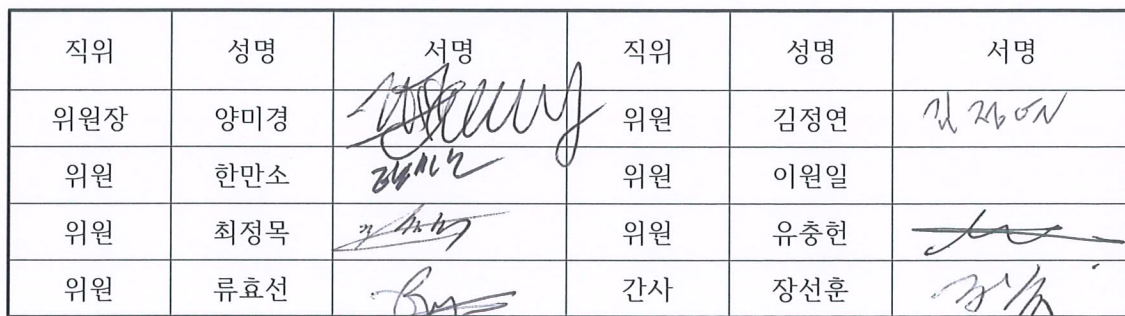 직위 성명 서명 직위 성명 서명
위원장 양미경 위원 김정연 김정연
위원 한만소 위원 이원일
위원 최정목 위원 유충헌
위원 류효선 간사 장선훈